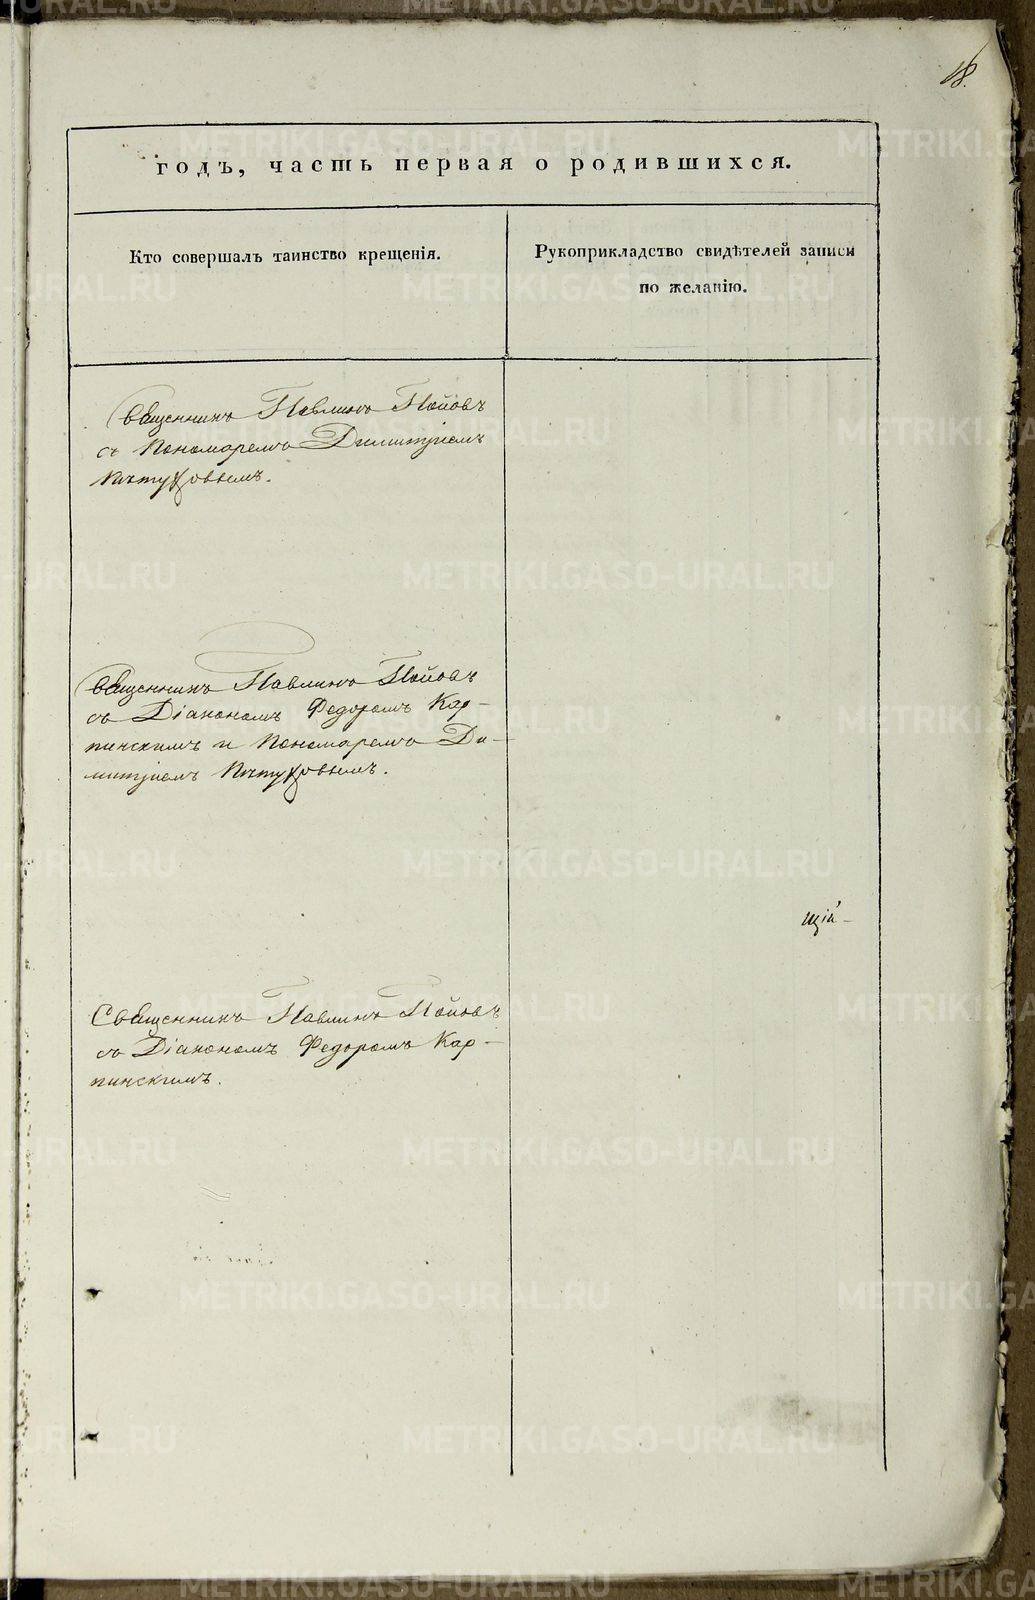 18.
годъ, часть первая о родившихся.
Кто совершалъ таинство крещенія.
Рукоприкладство свидѣтелей записи
по желанію.
Священникъ Павлинъ Поповъ
съ Пономаремъ Димитріемъ
Священникъ Павлинъ Поповъ
съ Діакономъ Федоромъ Кар-
пинскимъ и Пономаремъ Ди-
митріемъ
щій-
Священникъ Павлинъ Поповъ
съ Діакономъ Федоромъ Кар-
пинскимъ.
METRIKI.GASO-URAL.RU